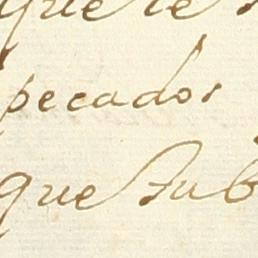 que le
pecados
que Sub